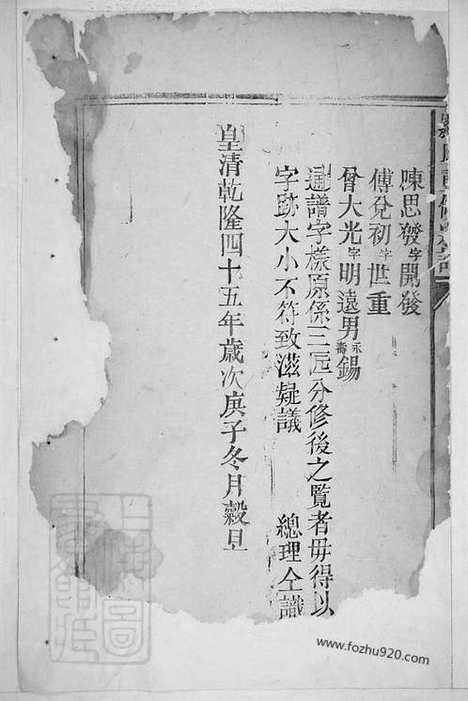 陳思發字開發
傅兌初字世重
曾大光字明遠男永壽錫
通譜字樣原係三匠分修後之覧者毋得以
字跡大小不符致滋疑議　總理仝識
皇清乾隆四十五年歲次庚子冬月穀旦
www.fozhu920.com